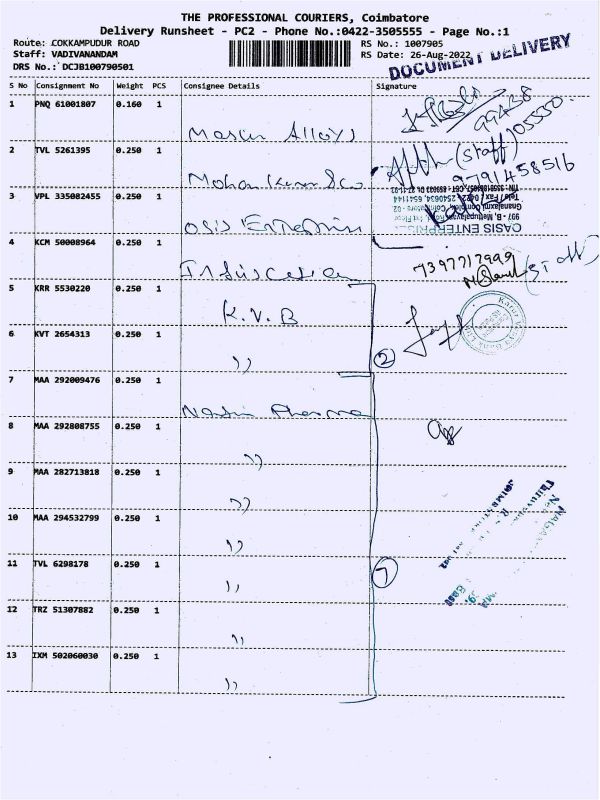 THE PROFESSIONAL COURIERS, Coimbatore
Delivery Runsheet - PC2 - Phone No.:0422-3505555 - Page No.:1
Route: COKKAMPUDUR ROAD
RS No.: 1007905
Staff: VADIVANANDAM
RS Date: 26-Aug-2022
DRS No.: DCJB100790501
DOCUMENT DELIVERY
S No Consignment No Weight PCS Consignee Details Signature
1 PNQ 61001807 0.160 1
Alloys
99428
05550
2 TVL 5261395 0.250 1
Mohan Kumar & co
(staff)
9791458516
3 VPL 335082455 0.250 1
Oasis Enterprises
OASIS ENTERPRISES
4 KCM 50008964 0.250 1
7397717999
(Staff)
5 KRR 5530220 0.250 1
K.V.B
6 KVT 2654313 0.250 1
,,
2
7 MAA 292009476 0.250 1
Pharma
8 MAA 292808755 0.250 1
,,
9 MAA 282713818 0.250 1
,,
10 MAA 294532799 0.250 1
,,
11 TVL 6298178 0.250 1
,,
7
12 TRZ 51307882 0.250 1
,,
13 IXM 502060030 0.250 1
,,